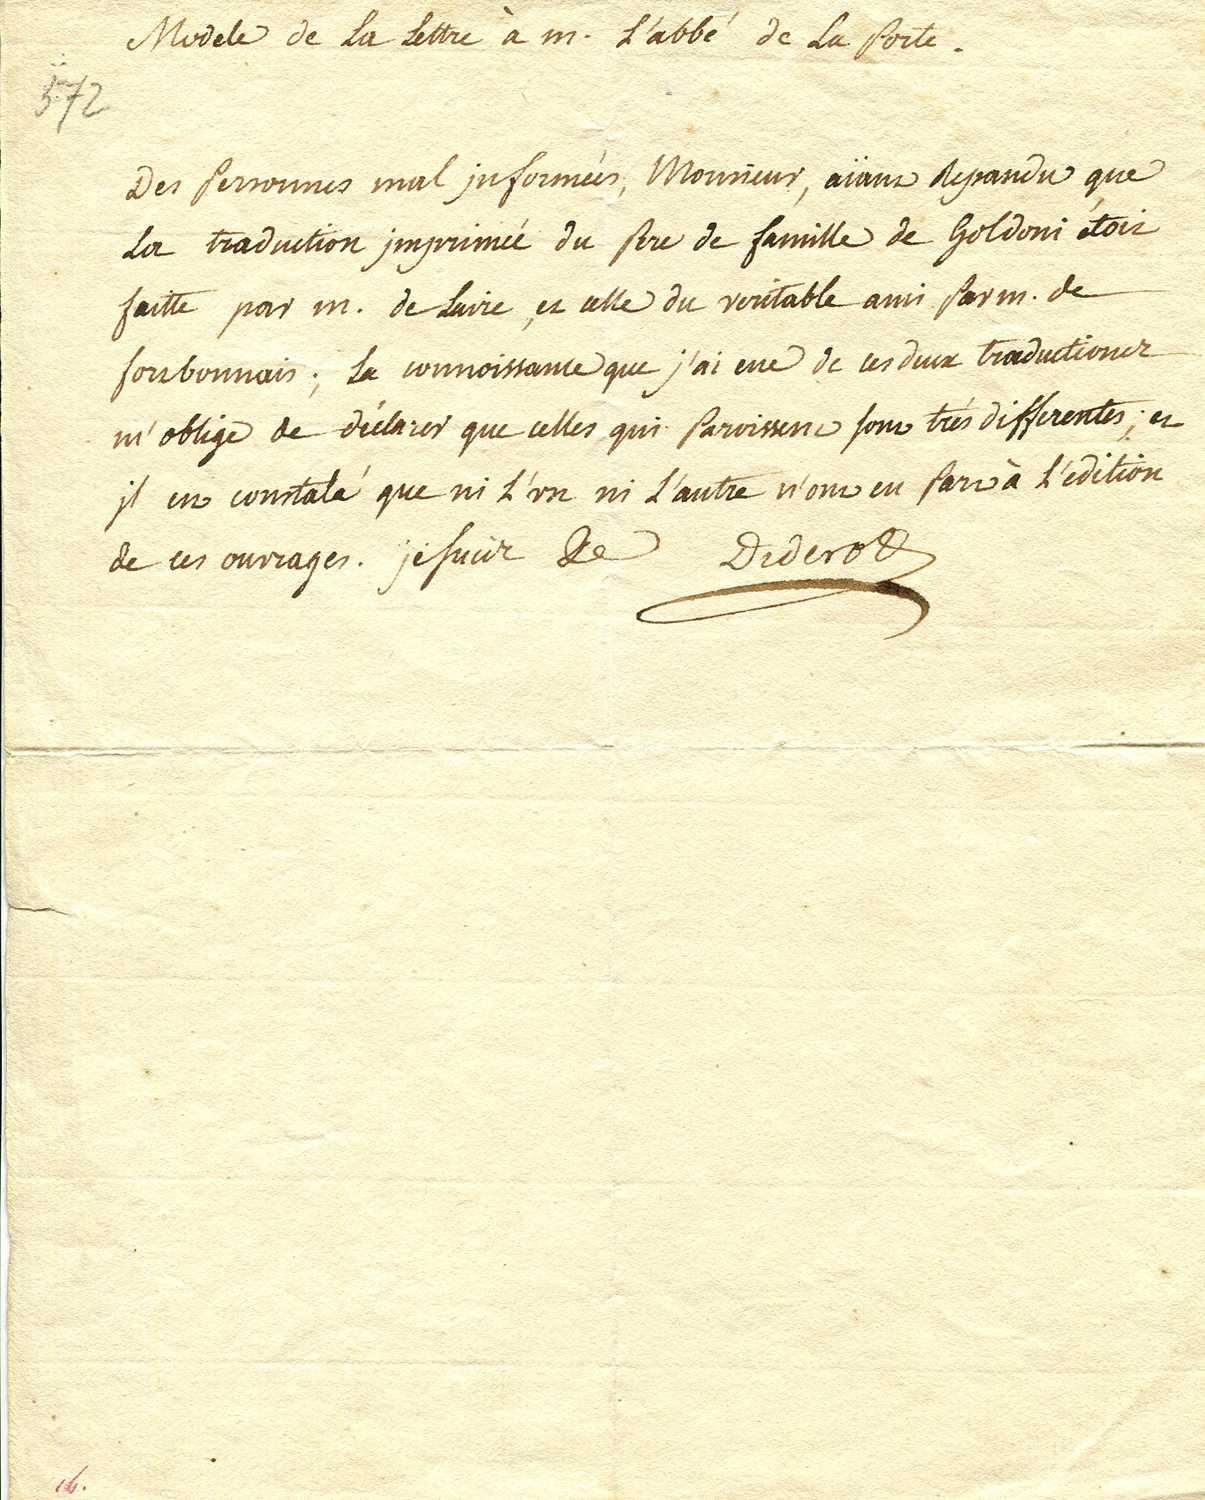 Modele de La Lettre à m. L'abbé de La Porte.
572
Des Personnes mal jnformées, Monsieur, aïant Repandu que
La traduction jmprimée du Pere de famille de Goldoni étoit
faitte par m. de Leire, et celle du veritable ami Par m. de
forbonnais; La connoissance que j'ai eue de ces deux traductions
m'oblige de déclarer que celles qui Paroissent sont trés differentes; et
jl est constaté que ni L'vn ni L'autre n'ont eu Part à L'édition
de ces ouvrages. je suis &c Diderot